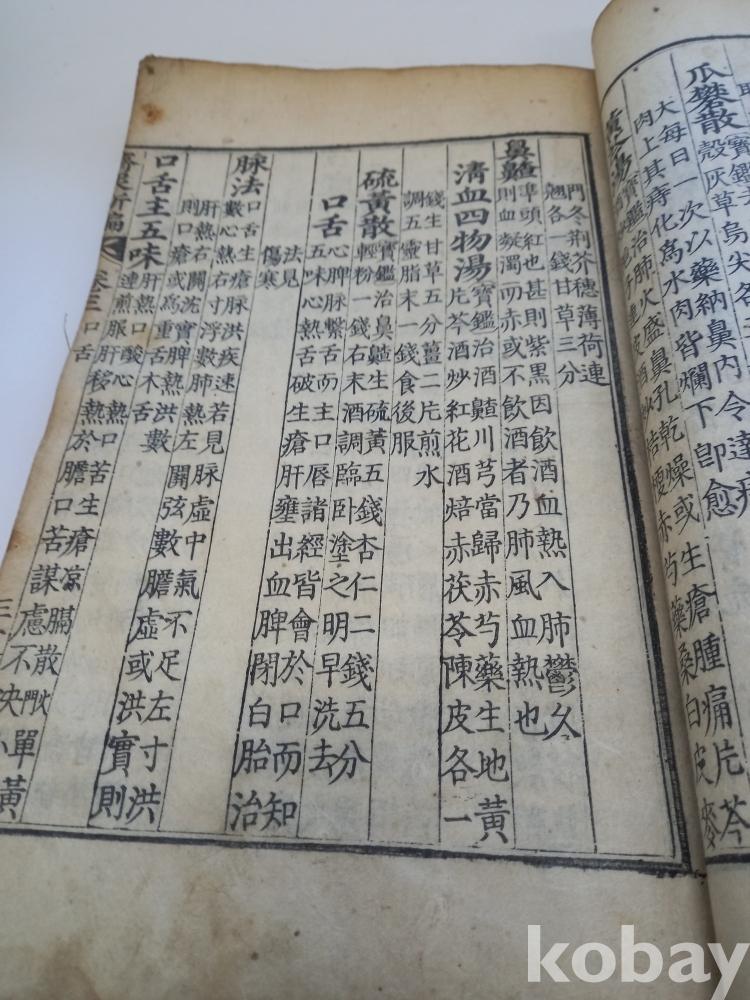 爪礬散
殼灰草烏尖
大每日一次以藥納鼻內令達
肉上其痔化爲水肉皆爛下卽愈
黃芩湯寶鑑治肺火盛鼻孔乾燥或生瘡腫痛片芩
赤芍藥桑白皮麥
門冬荊芥穗薄荷連
翹各一錢甘草三分
鼻齄準頭紅也甚則紫黑因飮酒血熱入肺鬱久
則血凝濁而赤或不飮酒者乃肺風血熱也
淸血四物湯寶鑑治酒齄川芎當歸赤芍藥生地黃
片芩酒炒紅花酒焙赤茯苓陳皮各一
錢生甘草五分薑二片煎水
調五靈脂末一錢食後服
硫黃散寶鑑治鼻齄生硫黃五錢杏仁二錢五分
輕粉一錢右末酒調臨臥塗之明早洗去
口舌心脾脉繫舌而主口唇諸經皆會於口而知
五味心熱舌破生瘡肝壅出血脾閉白胎治
法見
傷寒
脉法口舌生瘡脉洪疾速若見脉虛中氣不足左寸洪
數心熱右寸浮數肺熱左關弦數膽虛或洪實則
肝熱右關沈實脾熱洪數
則口瘡或爲重舌木舌
口舌主五味肝熱口酸心熱口苦生瘡凉膈散單黃
連煎服肝移熱於膽口苦謀慮不決小
濟衆新編 卷三 口舌
kobay